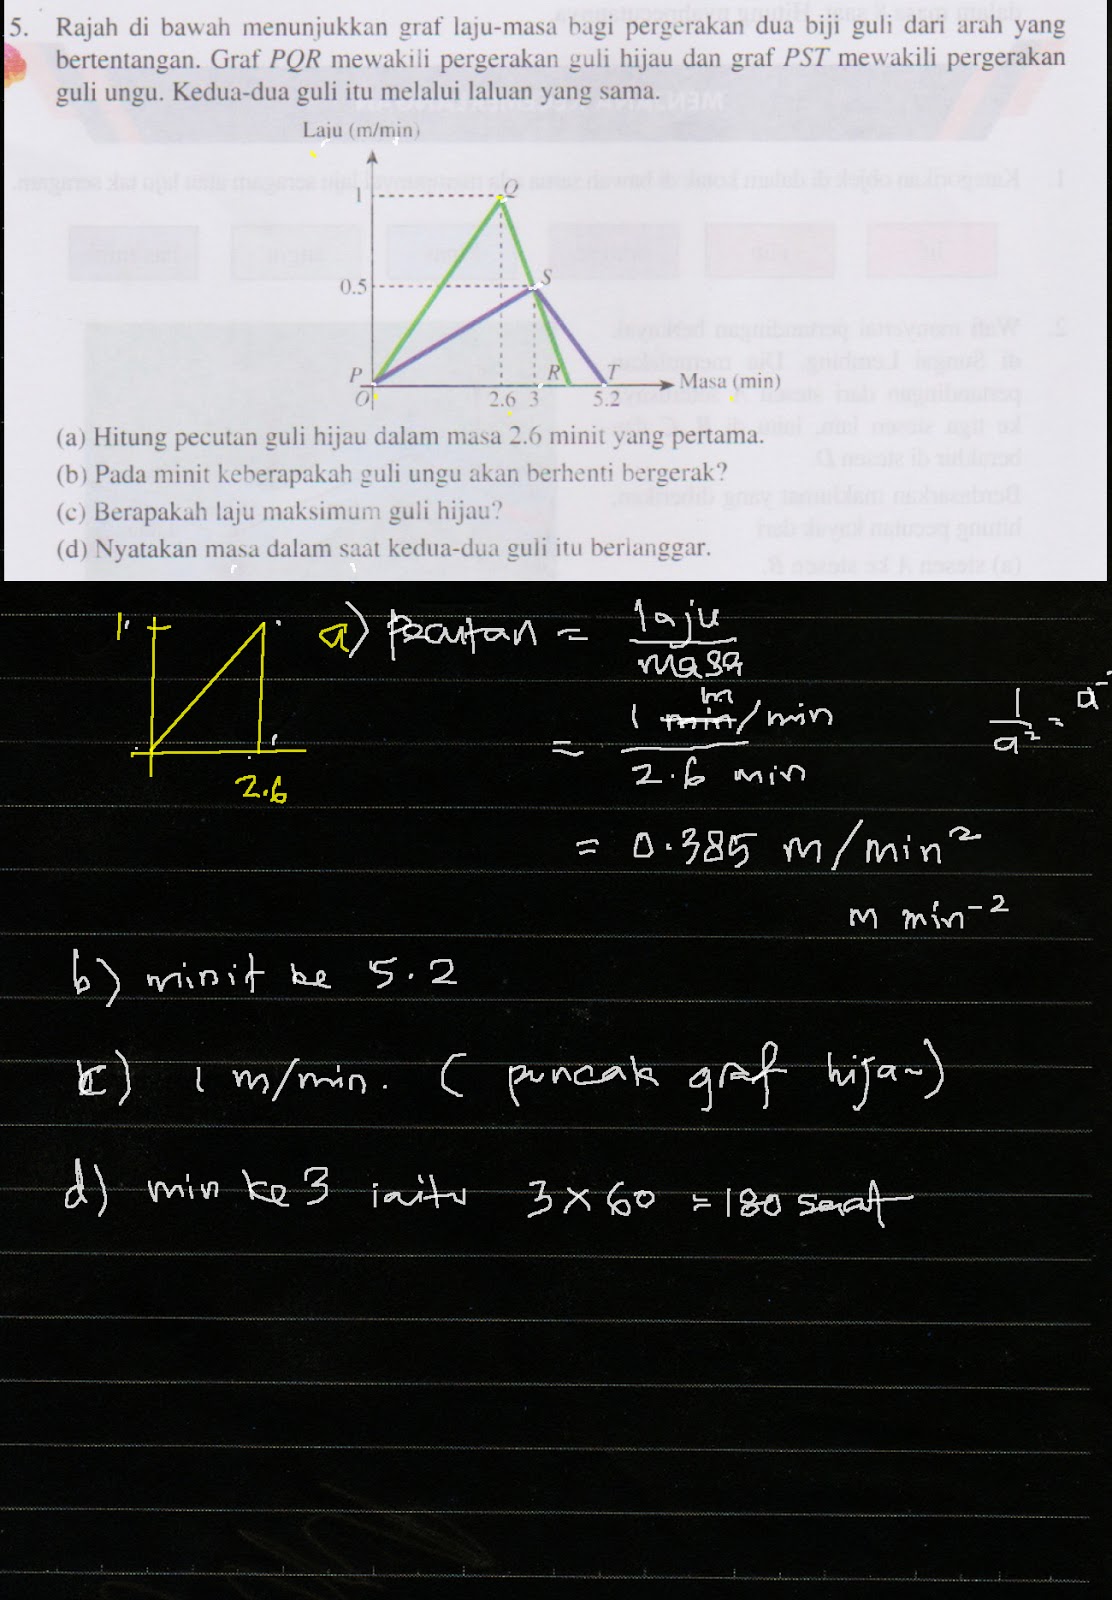 5. Rajah di bawah menunjukkan graf laju-masa bagi pergerakan dua biji guli dari arah yang
bertentangan. Graf PQR mewakili pergerakan guli hijau dan graf PST mewakili pergerakan
guli ungu. Kedua-dua guli itu melalui laluan yang sama.
Laju (m/min)
1
Q
0.5
S
P
R
T
Masa (min)
O
2.6 3 5.2
(a) Hitung pecutan guli hijau dalam masa 2.6 minit yang pertama.
(b) Pada minit keberapakah guli ungu akan berhenti bergerak?
(c) Berapakah laju maksimum guli hijau?
(d) Nyatakan masa dalam saat kedua-dua guli itu berlanggar.
1
2.6
a) pecutan = laju
masa
= 1 m/min
2.6 min
1
a² = a⁻
= 0.385 m/min²
m min⁻²
b) minit ke 5.2
c) 1 m/min. (puncak graf hijau)
d) min ke 3 iaitu 3 × 60 = 180 saat